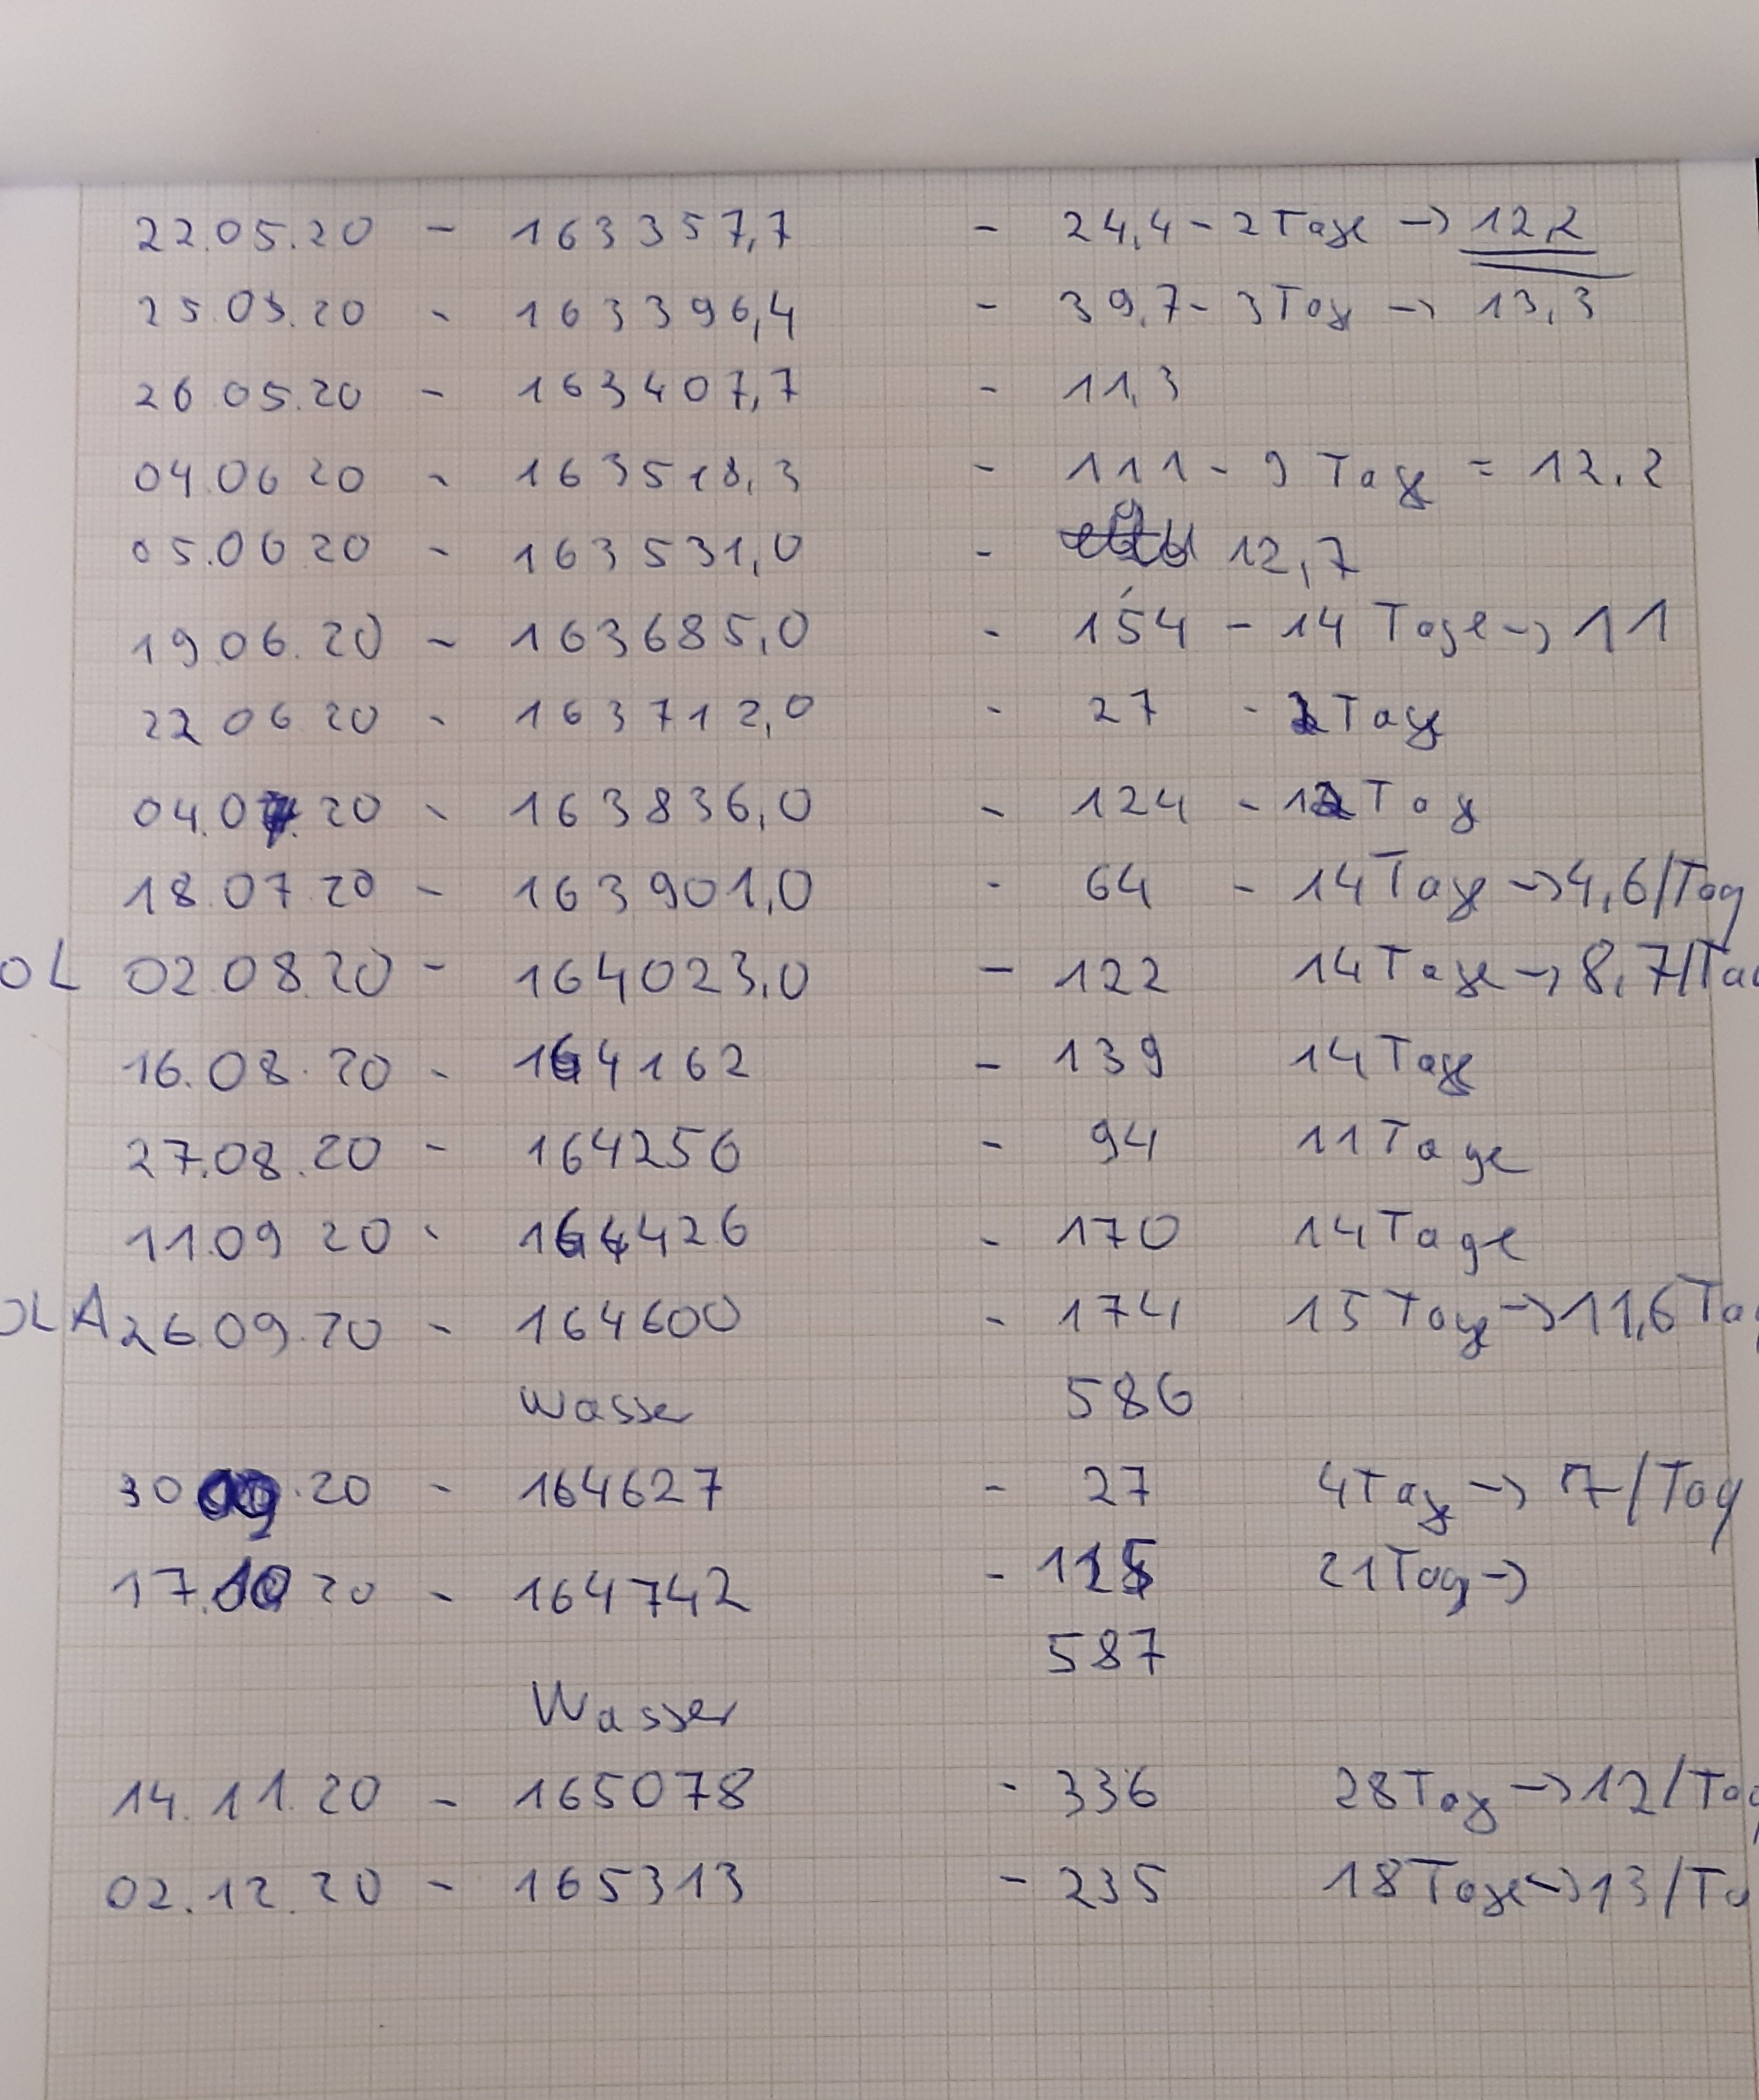 22.05.20 - 163357,7 - 24,4 - 2 Tage -> 12,2
25.05.20 - 163396,4 - 39,7 - 3 Tage -> 13,3
26.05.20 - 163407,7 - 11,3
04.06.20 - 163518,3 - 111 - 9 Tage = 12,2
05.06.20 - 163531,0 - 12,7
19.06.20 - 163685,0 - 154 - 14 Tage -> 11
22.06.20 - 163712,0 - 27 - Tage
04.07.20 - 163836,0 - 124 - 12 Tage
18.07.20 - 163901,0 - 64 - 14 Tage -> 4,6/Tag
OL 02.08.20 - 164023,0 - 122 14 Tage -> 8,7/Ta
16.08.20 - 164162 - 139 14 Tage
27.08.20 - 164256 - 94 11 Tage
11.09.20 - 164426 - 170 14 Tage
OLA 26.09.20 - 164600 - 174 15 Tage -> 11,6 Ta
Wasser 586
30.09.20 - 164627 - 27 4 Tage -> 7/Tag
17.10.20 - 164742 - 115 21 Tage ->
587
Wasser
14.11.20 - 165078 - 336 28 Tage -> 12/Tag
02.12.20 - 165313 - 235 18 Tage -> 13/Ta